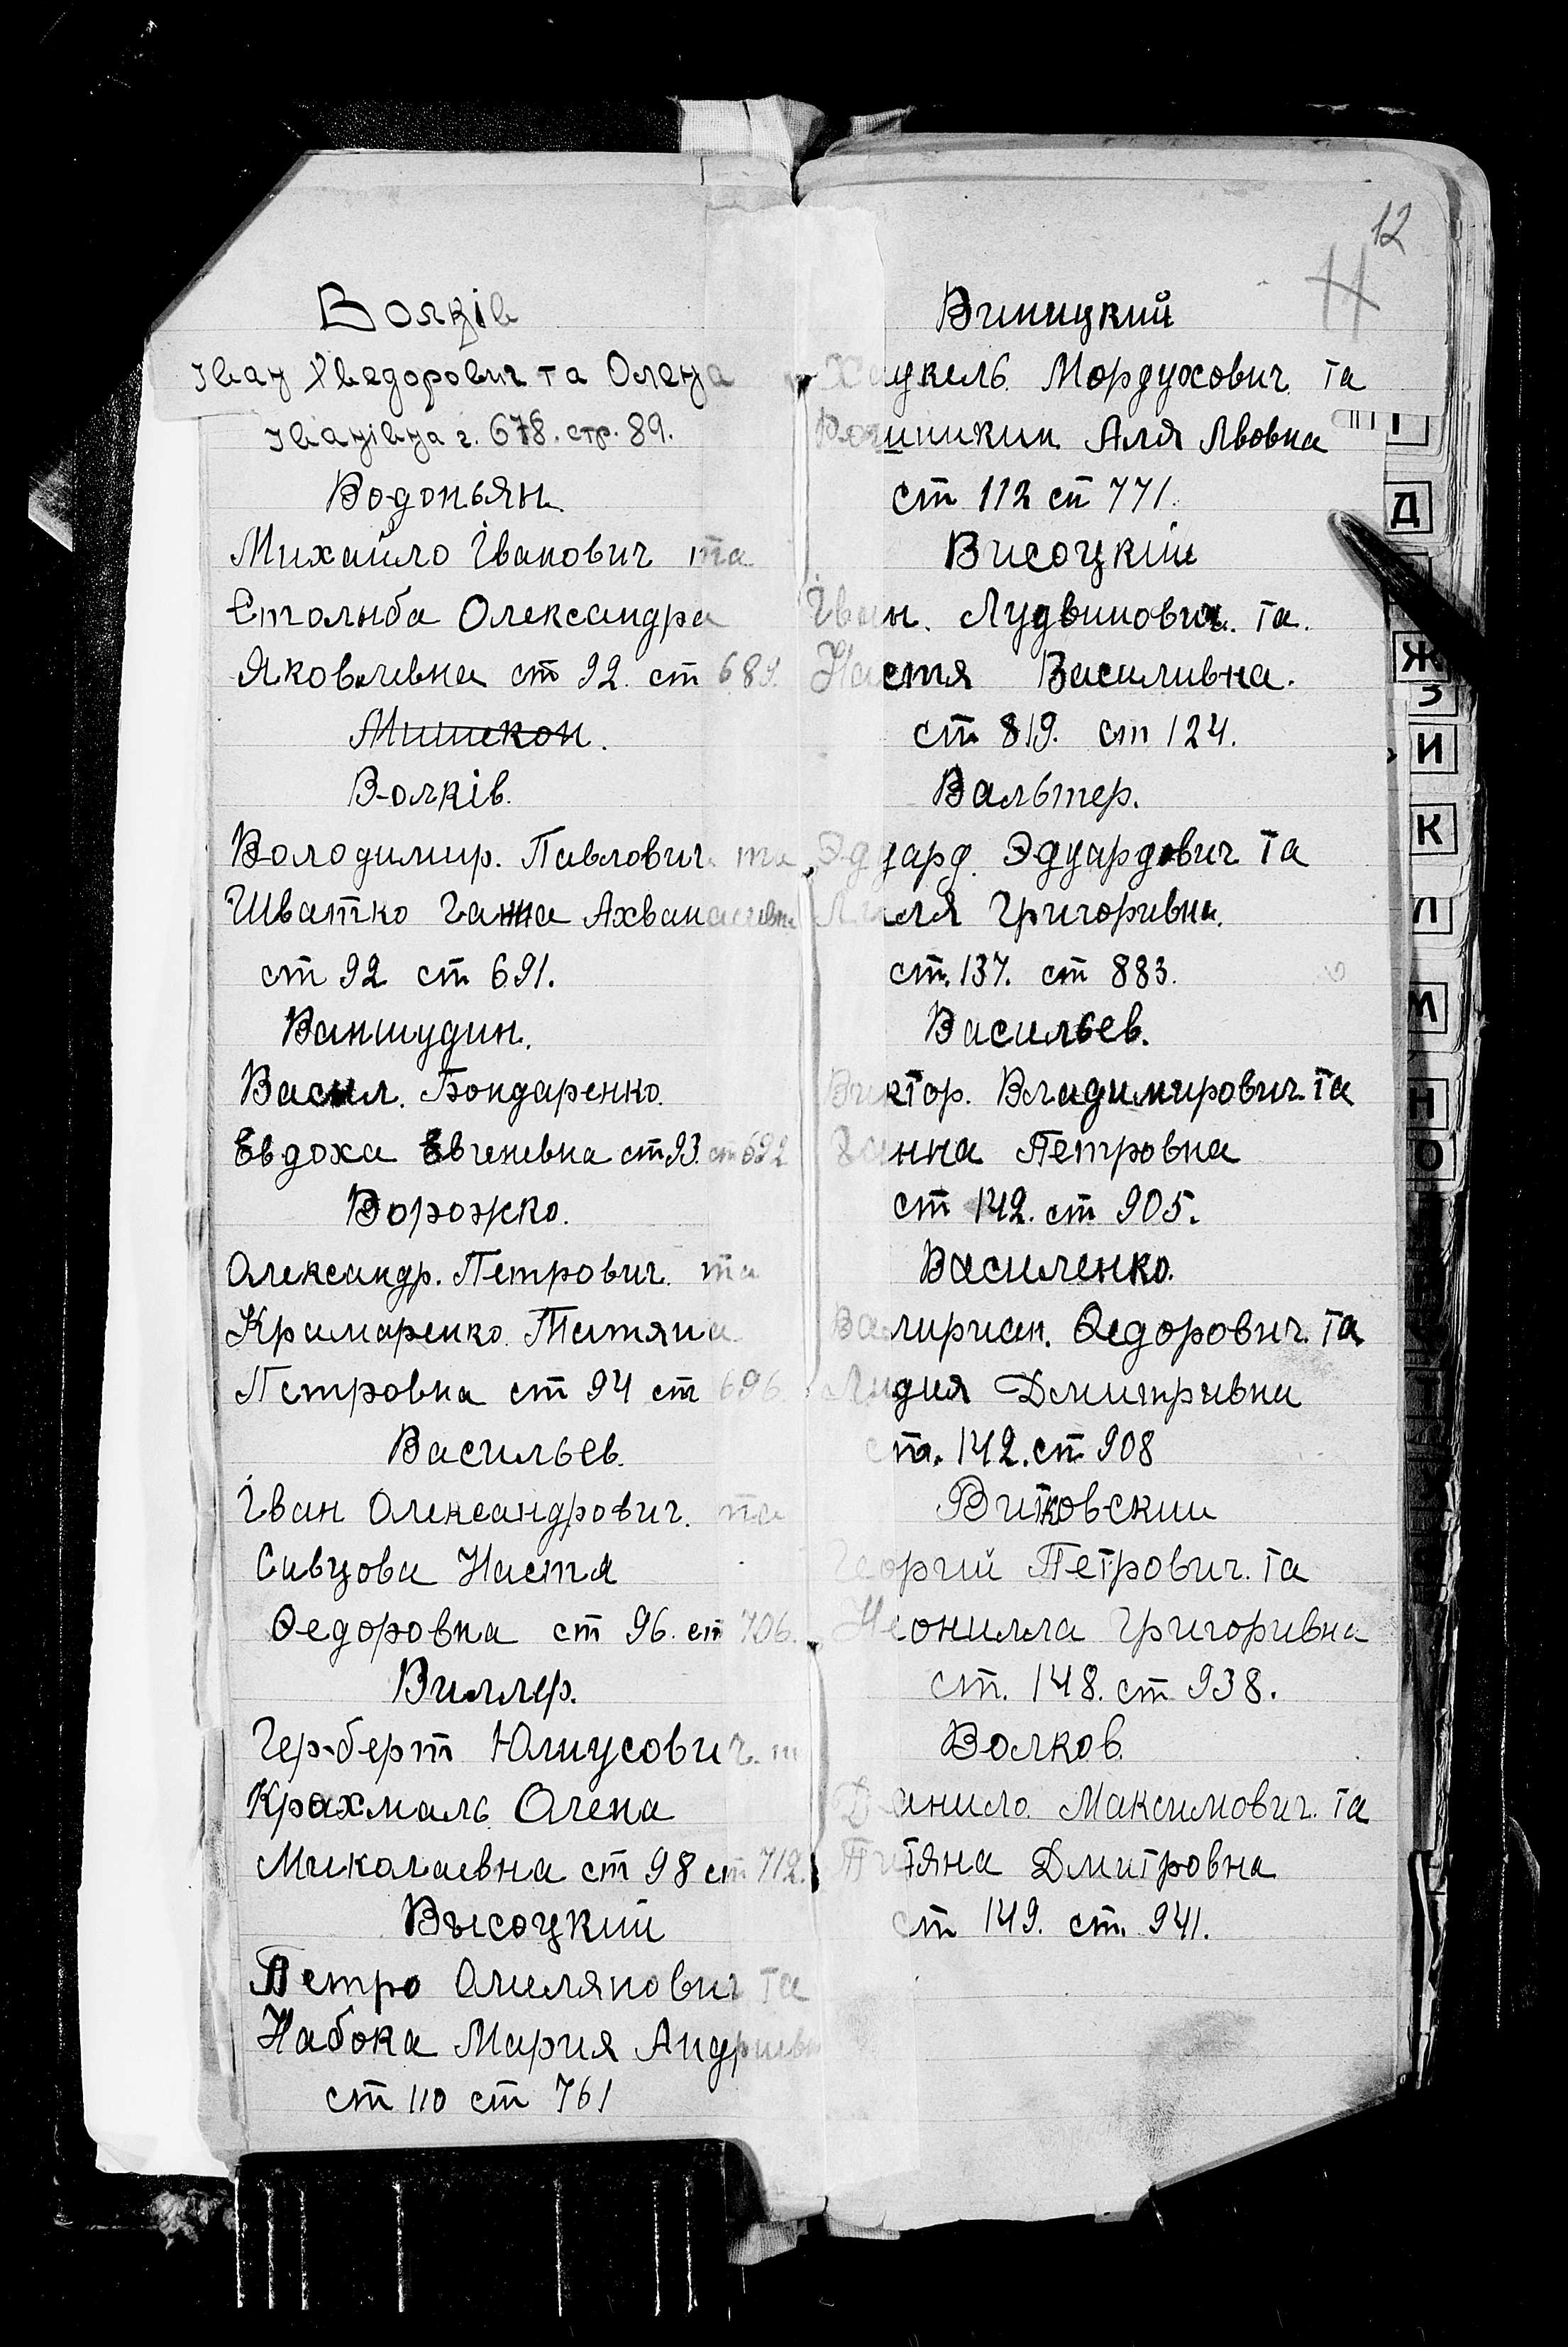 Вояків
Іван Хведорович та Олена
Іванівна г. 678. стр. 89.
Водопьян.
Михайло Іванович та
Єтголыба Олександра
Яковлевна ст 92. ст 689.
Мишекон.
Волків.
Володимир. Павлович та
Шватко Ганна Ахванасивна
ст 92 ст 691.
Ваншудин.
Васил. Бондаренко.
Евдоха Евгеневна ст 93. ст 692
Ворожко.
Олександр. Петрович. та
Крамаренко. Татяна
Петровна ст 94 ст 696.
Васильев.
Іван Олександрович. та
Сивцова Настя
Федоровна ст 96. ст 706.
Виллер.
Герберт Юлиусович. т
Крахмаль Олена
Миколаевна ст 98 ст 712.
Высоцкий
Петро Омелянович та
Набока Мария Андриевн
ст 110 ст 761
12
Виницкий
Хацкель. Мордухович та
Аля Львовна
ст 112 ст 771.
Висоцкий
Іван. Лудвигович. та.
Настя Василивна.
ст. 819. ст 124.
Вальтер.
Эдуард. Эдуардович та
Григоривна.
ст. 137. ст 883.
Васильев.
Виктор. Владимирович. та
Ганна Петровна
ст 142. ст 905.
Василенко.
Валириан. Федорович. та
Лидия Дмитривна
ст. 142. ст 908
Витковский
Георгий Петрович. та
Неонилла Григоривна
ст. 148. ст 938.
Волков.
Данило. Максимович. та
Титяна Дмитровна
ст 149. ст. 941.
Д
Ж
З
И
К
Л
М
Н
О